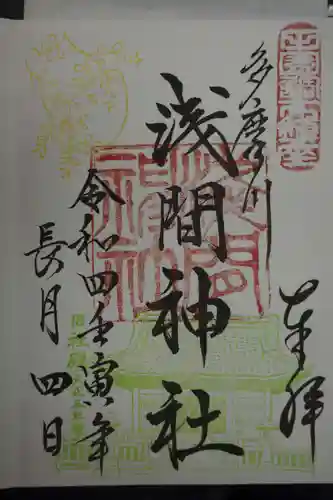 奉拝
多摩川
浅間神社
令和四壬寅年
長月四日